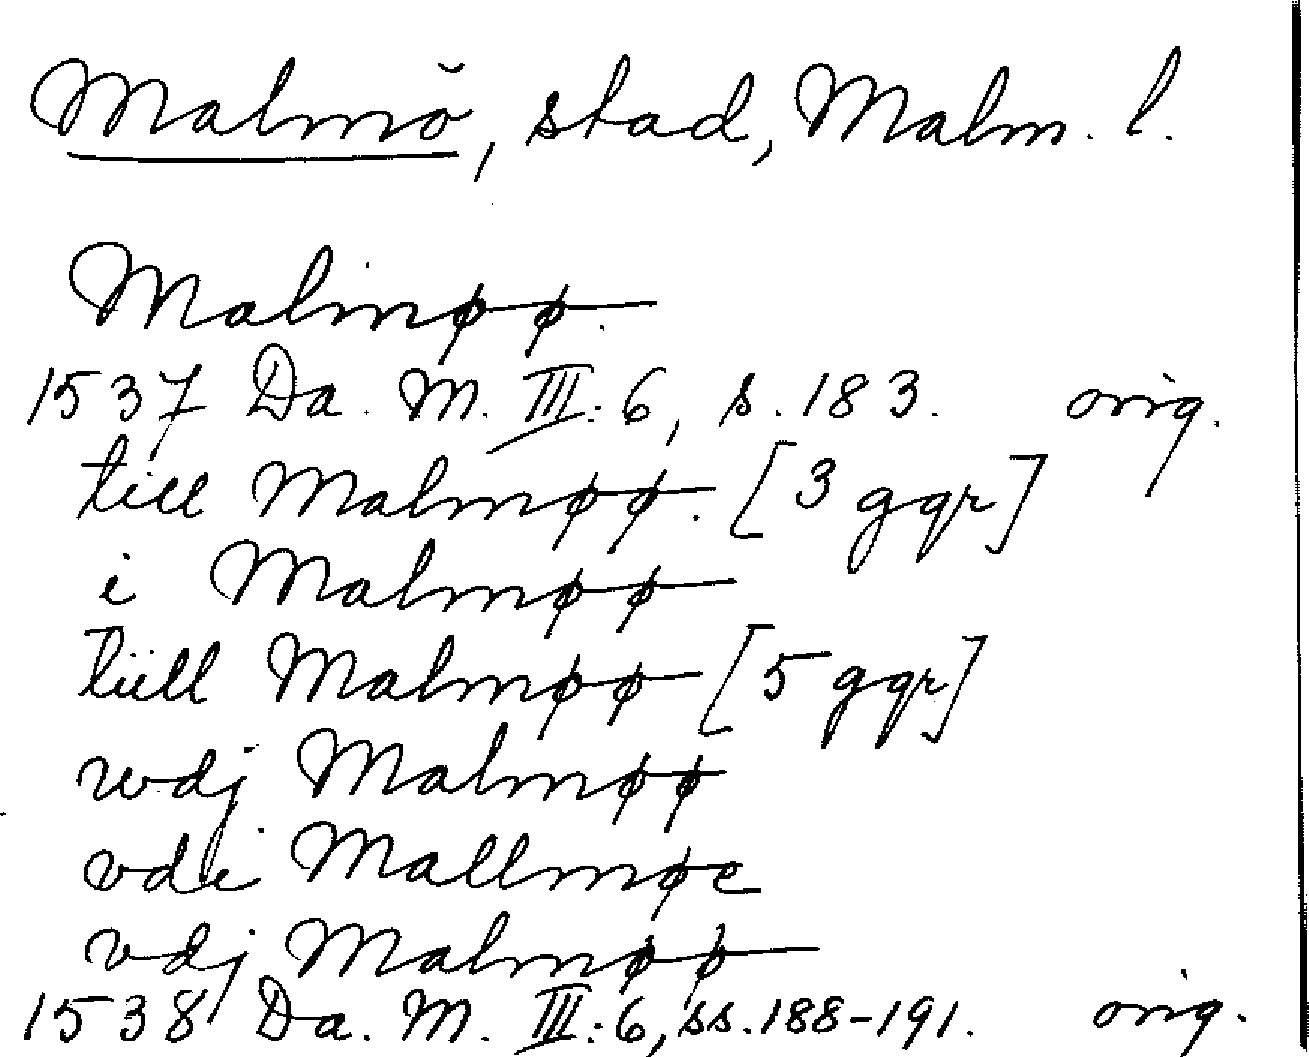 Malmö, stad, Malm. l.
Malmøø
1537 Da. M. III:6, s. 183. orig.
till Malmøø. [3 ggr]
i Malmøø
tiill Malmøø [5 ggr]
wdj Malmøø
vdi Mallmøe
vdj Malmøø
1538 Da. M. III:6, ss. 188-191. orig.